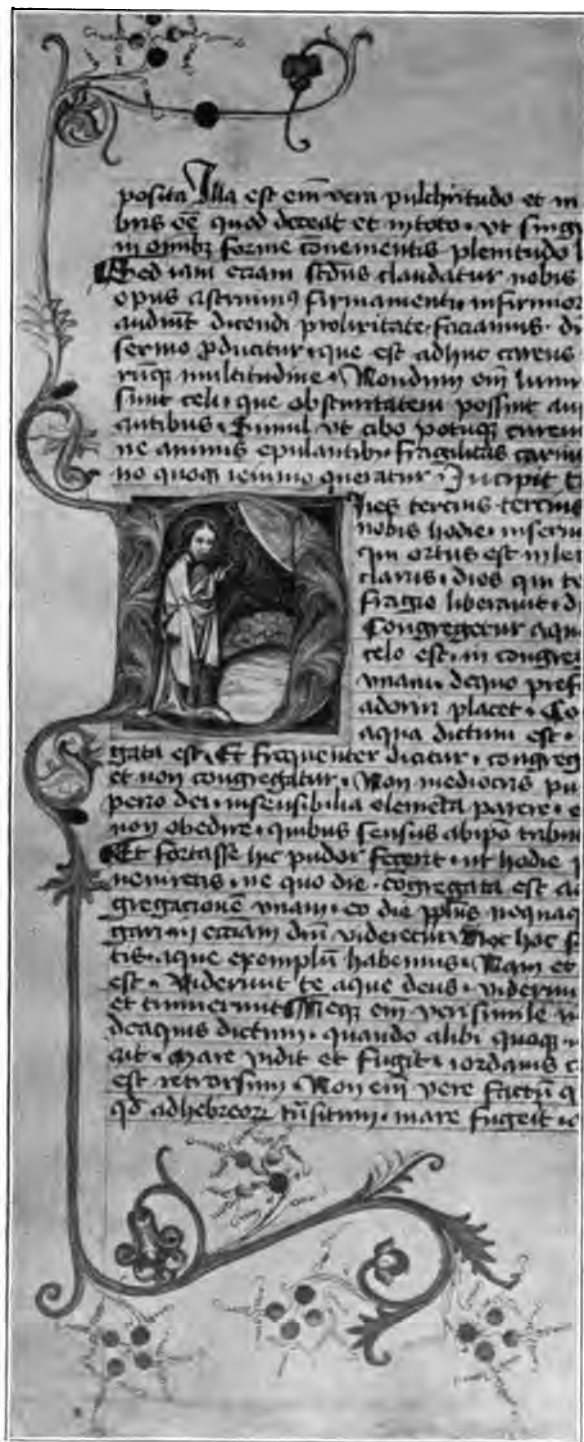 posita Illa est em̄ vera pulchritudo et in
bris eē quod deceat et in toto · vt sing
in omībꝫ forme cōuenientis plenitudo
Sed iam eciam scdus claudatur nobis
opus astruimꝰ firmamenti infirmio
audiūt dicendi prolixitate faciamus · di
sermo ꝓducitur que est adhuc carens
multitudine · Nondum em̄ lum
sunt celi · que obscuritatem possint au
cantibus · Simul vt cibo potuqꝫ curem
ne animis epulantibꝰ fragilitas carnī
no quoqꝫ ieiunio queratur · Incipit t
Dies tercius tercius
nobis hodie · in sermo
qui ortus est in lec
claris · dies qui te
fragio liberauit · di
Congregetur aqua
celo est · in congre
vnam · de quo pref
adorin placet · Co
aqua dictum est ·
gata est · Et frequenter dicitur · congreg
et non congregatur · Non mediocris pu
perio dei · insensibilia elemēta parere · e
non obedire · quibus sensus ab ipō tribu
Et fortasse hic pudor fecerit · ut hodie
ueniretis · ne quo die · cōgregata est a
gregacionē vnam · eo die ppl̄us nequaq
gari in eccl̄iam dn̄i videretur Nec hoc
tis · aque exemplū habemus · Nam et
est · Viderunt te aque deus · viderunt
et timuerunt Neqꝫ em̄ verisimile v
de aquis dictum · quando alibi quoqꝫ ·
ait · Mare vidit et fugit · iordanis c
est retrorsum · Non em̄ vere factū q
qd̄ ad hebreoꝝ trn̄situm · mare fugit io